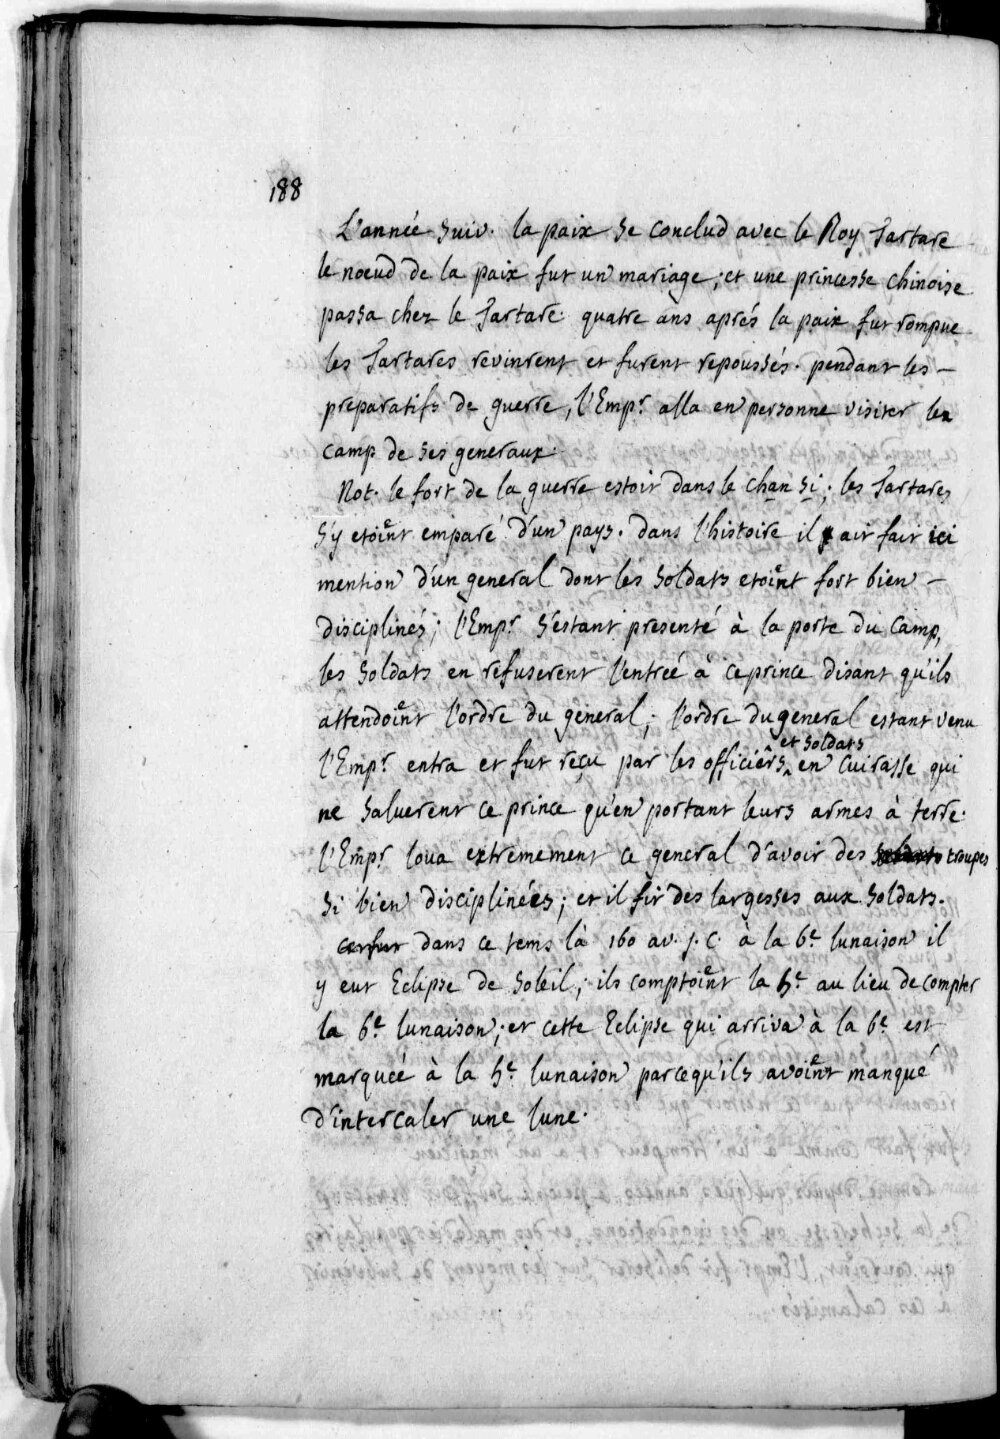 188
L'année suiv. la paix se conclud avec le Roy Tartare
le nœud de la paix fut un mariage; et une princesse chinoise
passa chez le Tartare. quatre ans aprés la paix fut rompue
les Tartares revinrent et furent repoussés. pendant les -
preparatifs de guerre, l'Empr. alla en personne visiter les
camp de ses generaux.
Not. le fort de la guerre estoit dans le chan si; les Tartares
s'y etoient emparé d'un pays. dans l'histoire il ait fait ici
mention d'un general dont les soldats etoient fort bien -
disciplinés; l'Empr. s'estant presenté à la porte du camp,
les soldats en refuserent l'entrée à ce prince disant qu'ils
attendoient l'ordre du general; l'ordre du general estant venu
l'Empr. entra et fut reçu par les officiers et soldats en cuirasse qui
ne saluerent ce prince qu'en portant leurs armes à terre.
l'Empr. loua extremement ce general d'avoir des soldats troupes
si bien disciplinées; et il fit des largesses aux soldats.
ce fut dans ce tems là 160 av. J. C. à la 6e. lunaison il
y eut Eclipse de soleil; ils comptoient la 5e. au lieu de compter
la 6e. lunaison; et cette Eclipse qui arriva à la 6e. est
marquée à la 5e. lunaison parcequ'ils avoient manqué
d'intercaler une lune.